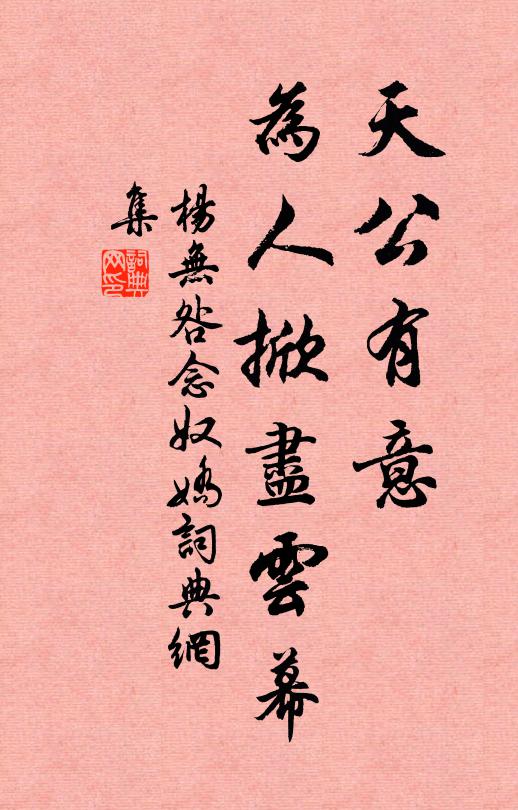 天公有意
為人掀盡雲幕
楊無咎念奴嬌詞典網
集
詞典網印